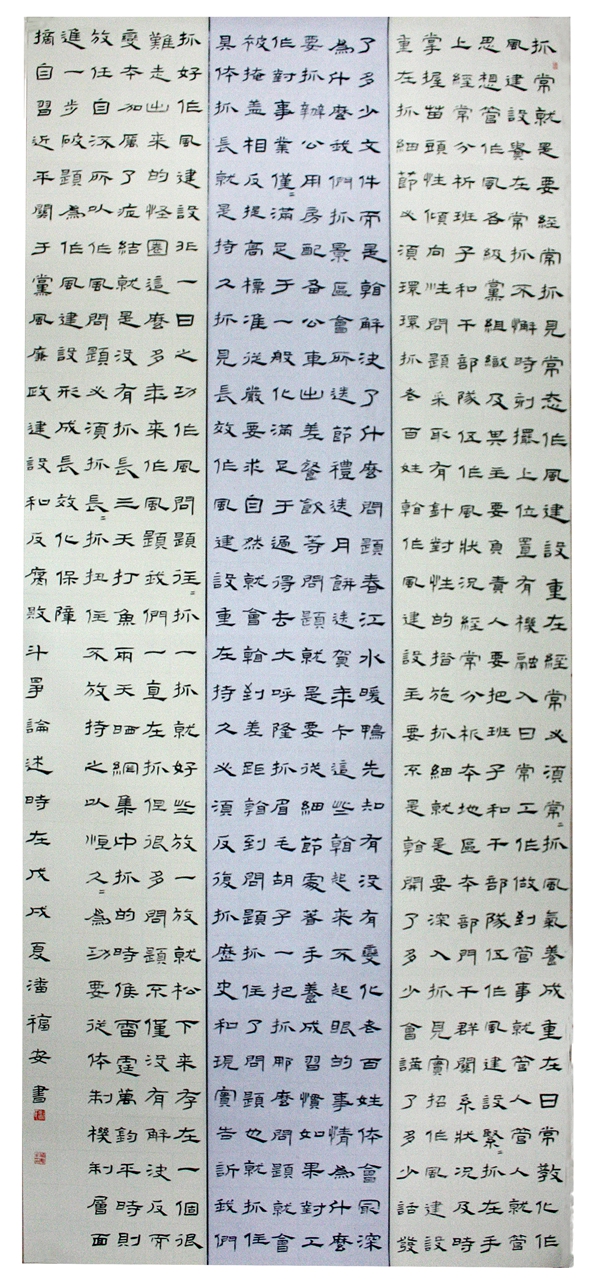 抓常就是要經常抓見常态作風建設重在經常必須常〻抓風氣養成重在日常教化作
風建設貴在常抓不懈時刻擺上位置有機融入日常工作做到管事就管人管人就管
思想管作風各級黨組織及其主要負責人要把班子和干部隊伍作風建設緊〻抓在手
上經常分析班子和干部隊伍作風狀況經常分析本地區本部門干群關系狀況及時
掌握苗頭性傾向性問題采取有針對性的措施抓細就是要深入抓見實招作風建設
重在抓細節必須環環抓老百姓看作風建設主要系是看開了多少會講了多少話發
了多少文件而是看解決了什麼問題春江水暖鴨先知有没有變化老百姓体會最深
為什麼我們抓景區會所送節禮送月餅送賀年卡這些看起來不起眼的事情為什麼
要抓辦公用房配备公車出差餐飲等問題就是要從細節處着手養成習慣如果對工
作對事業僅〻滿足于一般化滿足于過得去大呼隆抓眉毛胡子一把抓那麼問題就會
被掩盖相反提高標准從嚴要求自然就會看到差距看到問題抓住了問題也就抓住
具体抓長就是持久抓見長效作風建設重在持久必須反復抓歷史和現實告訴我們
抓好作風建設非一日之功作風問題往〻抓一抓就好些放一放就松下來存在一個很
難走出來的怪圈這麼多年來作風題我們一直在抓但很多問題不僅没有解決反而
變本加厲了症結就是没有抓長三天打魚兩天晒網集中抓的時候雷霆萬鈞平時則
放任自流所以作風問題必須抓長〻抓扭住不放持之以恒久〻為功要從体制機制層面
進一步破題為作風建設形成長效化保障
摘自習近平關于黨風廉政建設和反腐敗斗爭論述時在戊戌夏潘福安書